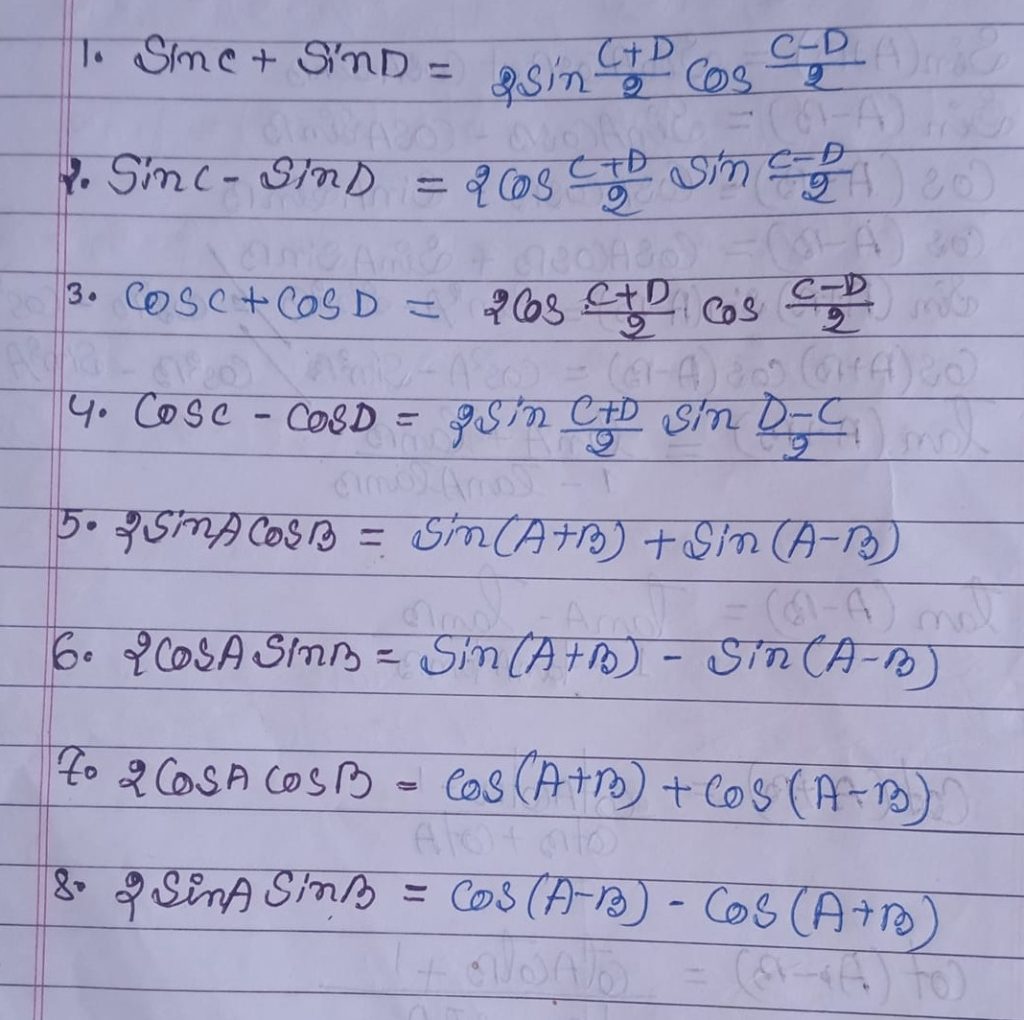 1. Sinc + SinD = 2sin C+D/2 Cos C-D/2
2. Sinc - SinD = 2cos C+D/2 Sin C-D/2
3. Cosc + CosD = 2Cos C+D/2 Cos C-D/2
4. Cosc - CosD = 2Sin C+D/2 Sin D-C/2
5. 2SinA CosB = Sin(A+B) + Sin(A-B)
6. 2CosA SinB = Sin(A+B) - Sin(A-B)
7. 2CosA CosB = Cos(A+B) + Cos(A-B)
8. 2SinA SinB = Cos(A-B) - Cos(A+B)